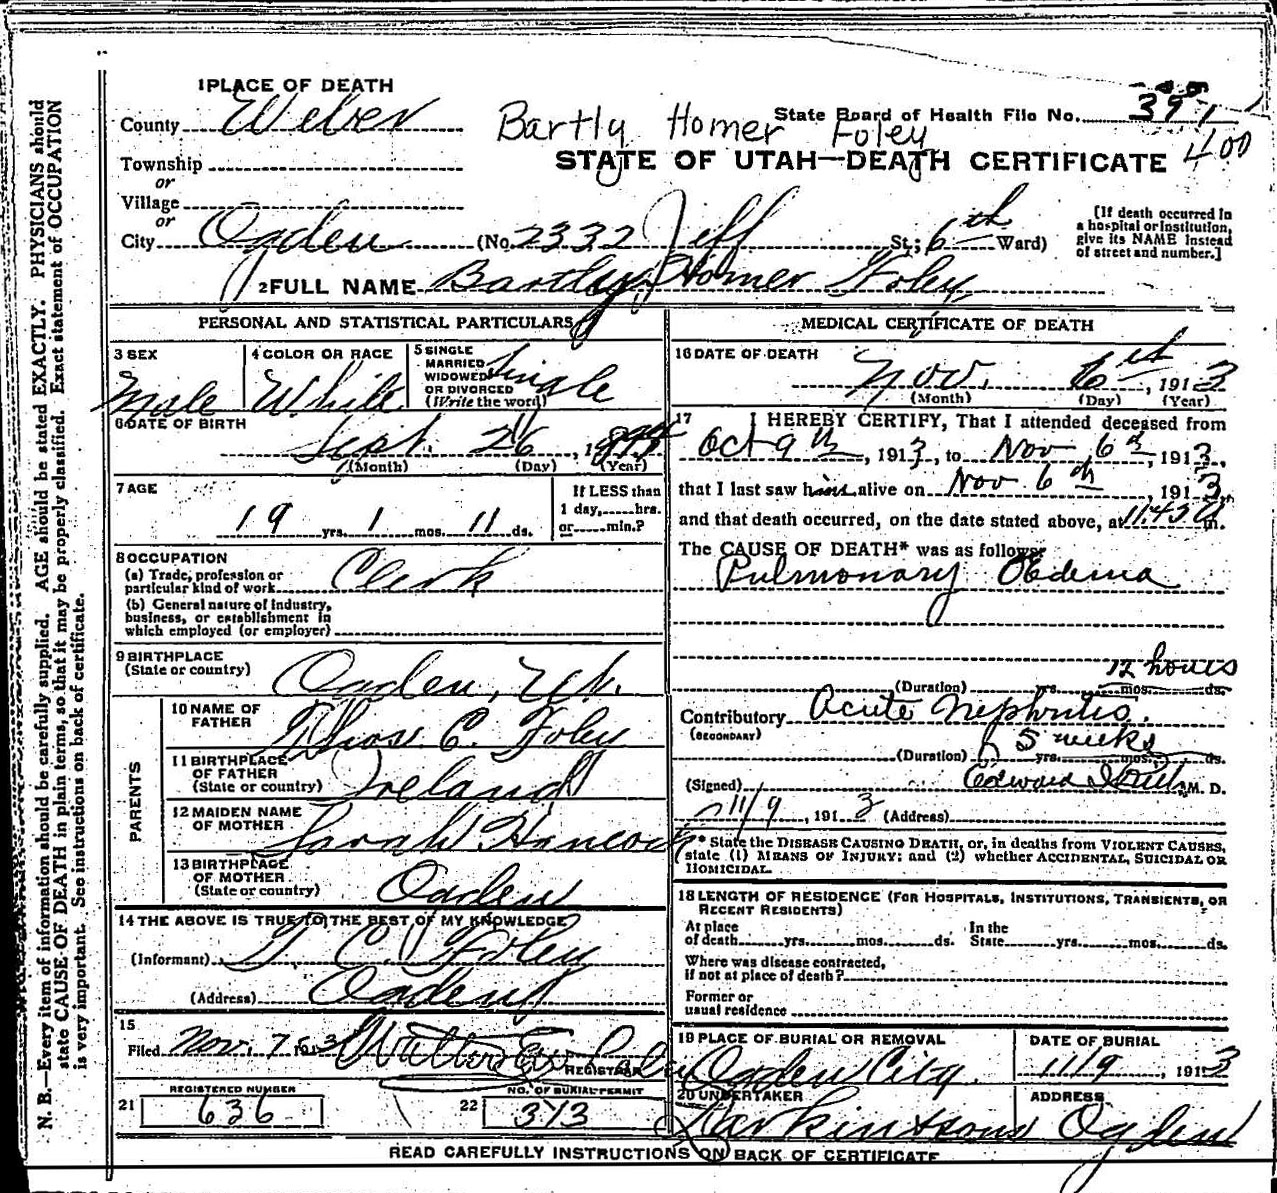 1 PLACE OF DEATH
County Weber
Bartly Homer Foley
State Board of Health File No. 391
400
STATE OF UTAH—DEATH CERTIFICATE
Township
or
Village
or
City Ogden (No. 2332 Jeff St.; 6th Ward)
[If death occurred in
a hospital or institution,
give its NAME instead
of street and number.]
2 FULL NAME Bartly Homer Foley
PERSONAL AND STATISTICAL PARTICULARS
3 SEX
Male
4 COLOR OR RACE
White
5 SINGLE
MARRIED
WIDOWED
OR DIVORCED
(Write the word)
Single
6 DATE OF BIRTH
Sept. 26, 1894
(Month) (Day) (Year)
7 AGE
19 yrs. 1 mos. 11 ds.
If LESS than
1 day,.....hrs.
or.....min.?
8 OCCUPATION
(a) Trade, profession or
particular kind of work Clerk
(b) General nature of Industry,
business, or establishment in
which employed (or employer)
9 BIRTHPLACE
(State or country)
Ogden, Ut.
PARENTS
10 NAME OF
FATHER
Thos. C. Foley
11 BIRTHPLACE
OF FATHER
(State or country)
Ireland
12 MAIDEN NAME
OF MOTHER
Sarah Hancock
13 BIRTHPLACE
OF MOTHER
(State or country)
Ogden
14 THE ABOVE IS TRUE TO THE BEST OF MY KNOWLEDGE
(Informant) T. C. Foley
(Address) Ogden
15
Filed Nov. 7, 1913
REGISTRAR
REGISTERED NUMBER
21 636
NO. OF BURIAL PERMIT
22 373
MEDICAL CERTIFICATE OF DEATH
16 DATE OF DEATH
Nov. 6th, 1913
(Month) (Day) (Year)
17 I HEREBY CERTIFY, That I attended deceased from
Oct 9th, 1913, to Nov 6th, 1913,
that I last saw him alive on Nov 6th, 1913,
and that death occurred, on the date stated above, at 11:45 a m.
The CAUSE OF DEATH* was as follows:
Pulmonary Oedema
12 hours
(Duration) yrs. mos. ds.
Contributory Acute Nephritis.
(SECONDARY)
5 weeks
(Duration) yrs. mos. ds.
(Signed) Edward M. D.
11/9, 1913 (Address)
* State the DISEASE CAUSING DEATH, or, in deaths from VIOLENT CAUSES,
state (1) MEANS OF INJURY; and (2) whether ACCIDENTAL, SUICIDAL OR
HOMICIDAL.
18 LENGTH OF RESIDENCE (FOR HOSPITALS, INSTITUTIONS, TRANSIENTS, OR
RECENT RESIDENTS)
At place
of death yrs. mos. ds.
In the
State yrs. mos. ds.
Where was disease contracted,
if not at place of death?
Former or
usual residence
19 PLACE OF BURIAL OR REMOVAL
Ogden City
DATE OF BURIAL
11/9, 1913
20 UNDERTAKER
ADDRESS
Ogden
READ CAREFULLY INSTRUCTIONS ON BACK OF CERTIFICATE
N. B.—Every item of information should be carefully supplied. AGE should be stated EXACTLY. PHYSICIANS should
state CAUSE OF DEATH in plain terms, so that it may be properly classified. Exact statement of OCCUPATION
is very important. See instructions on back of certificate.